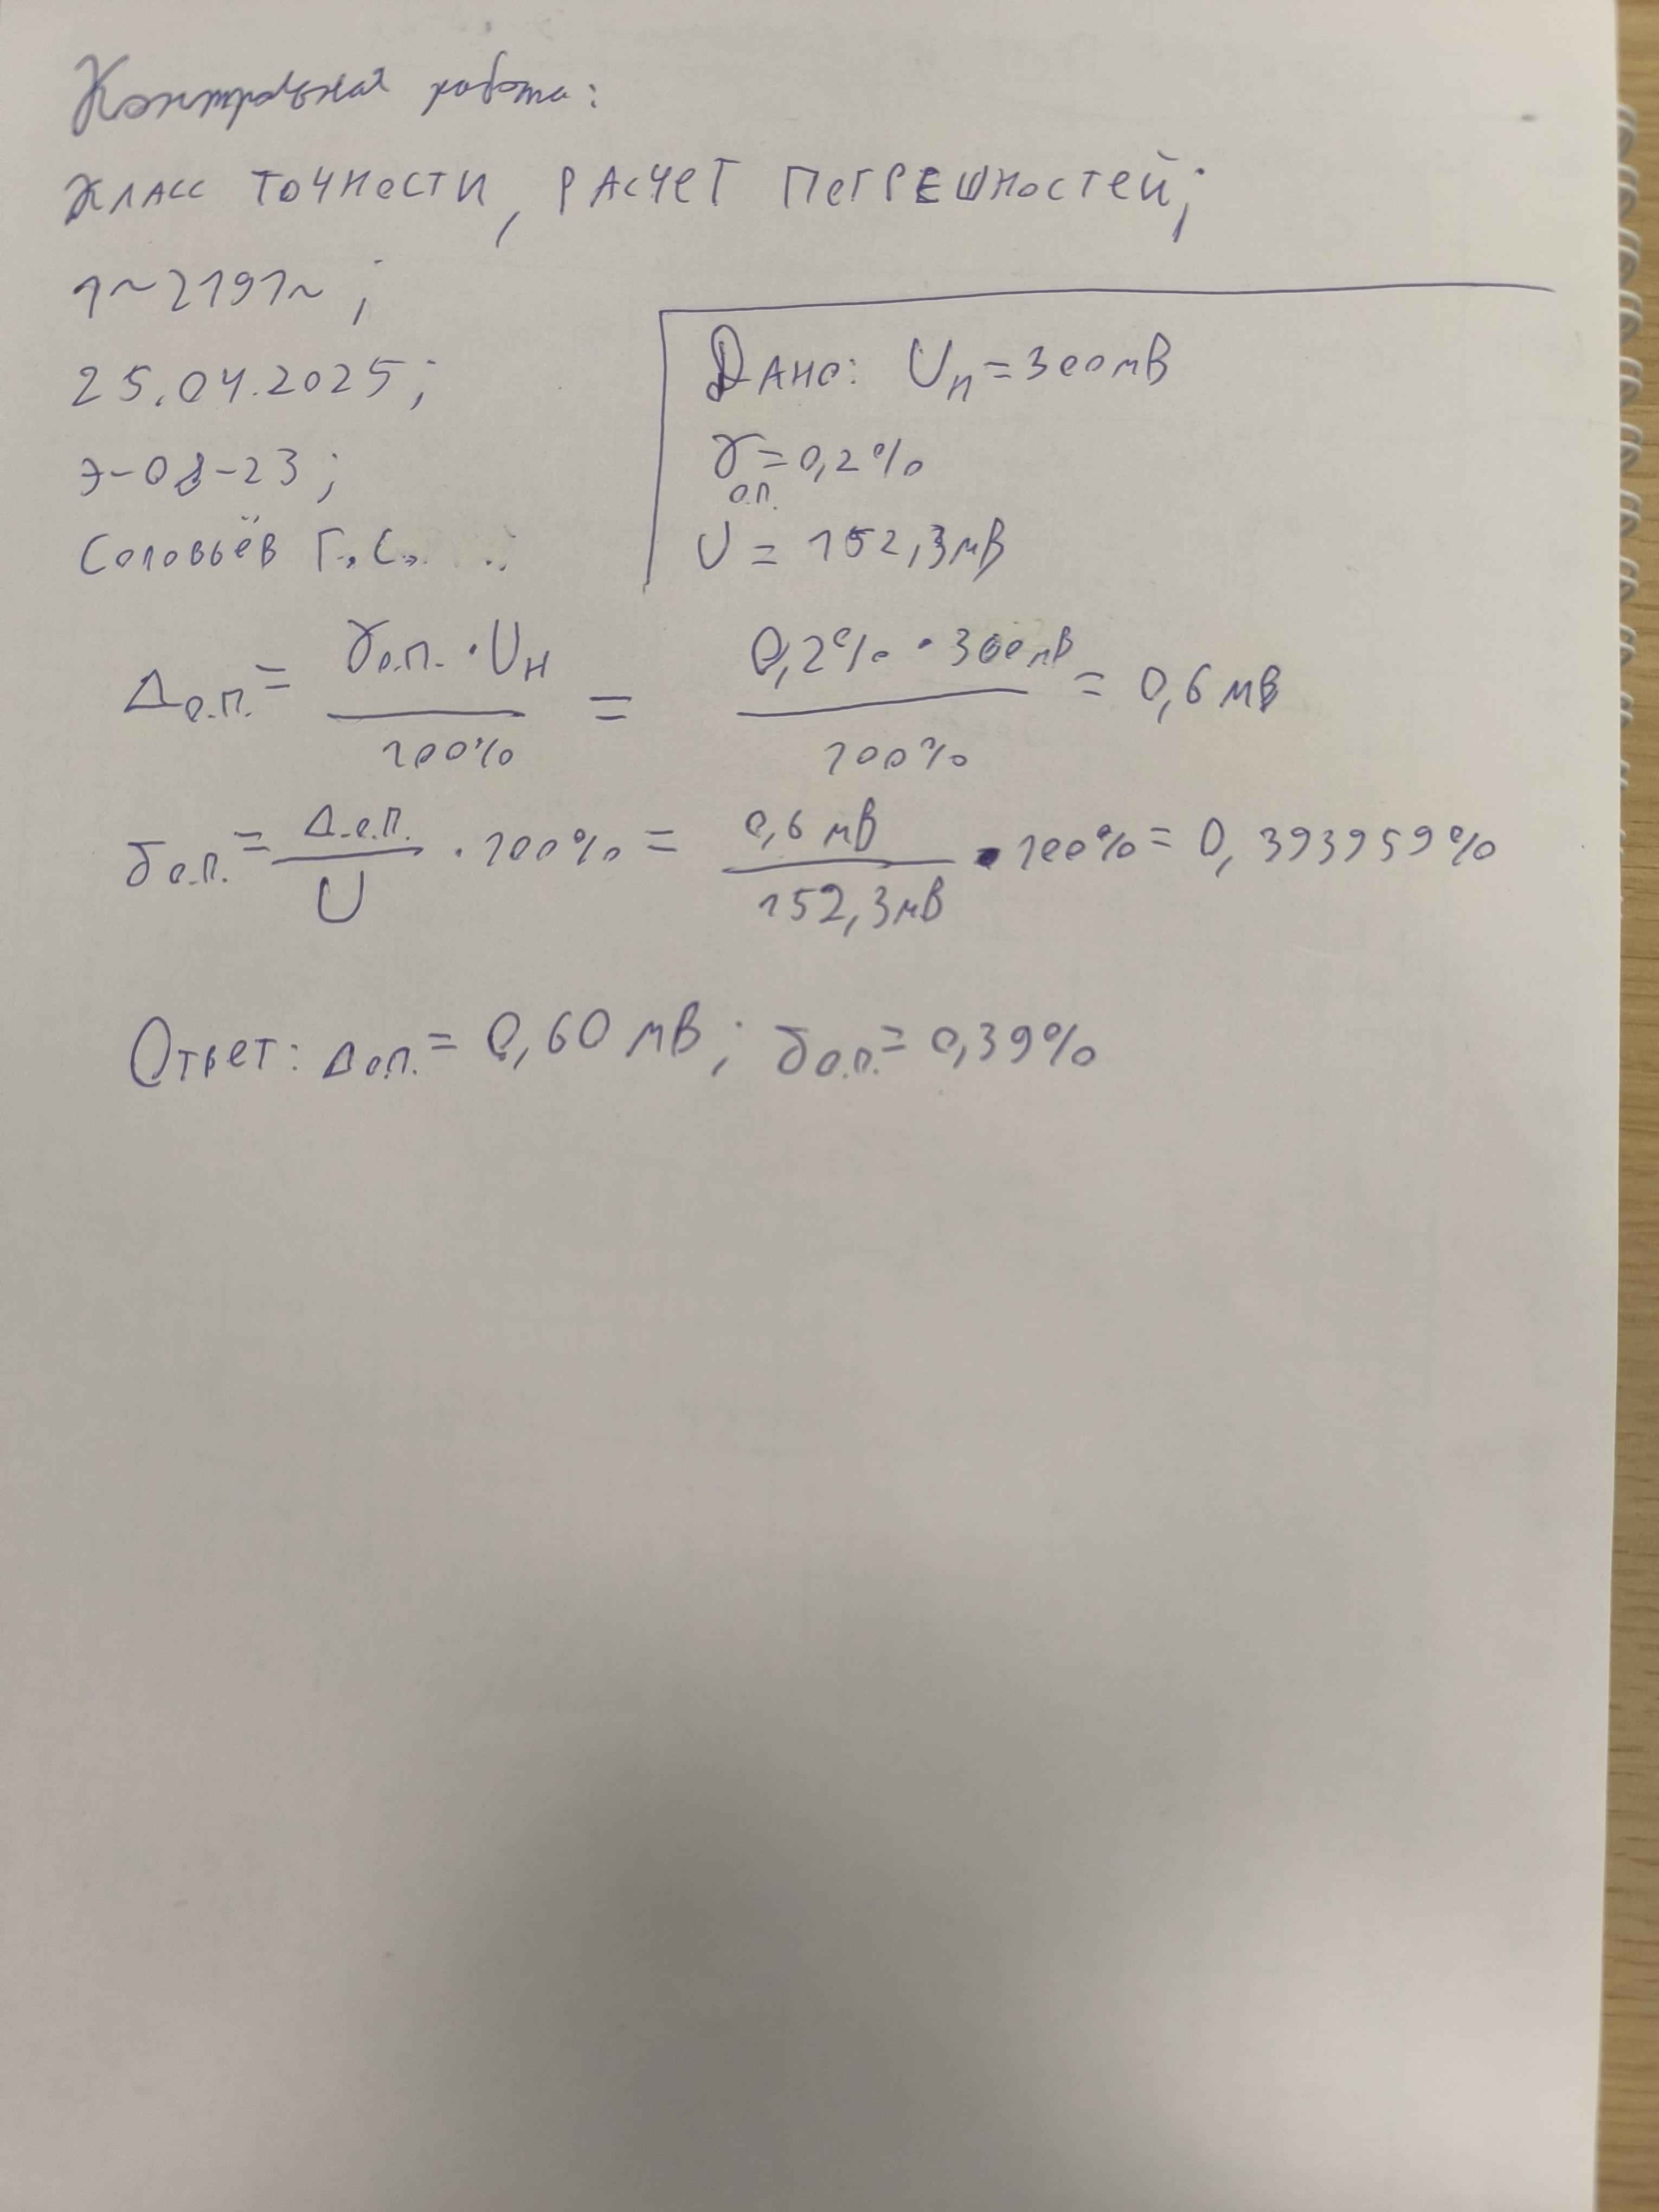 Контрольная работа:
Класс точности, расчет погрешностей;
1~2191~;
25.04.2025;
Э-08-23;
Соловьёв Г.С.
Дано: Uн=300мВ
γо.п.=0,2%
U = 152,3мВ
Δо.п. = γо.п. · Uн / 100% = 0,2% · 300мВ / 100% = 0,6 мВ
δо.п. = Δо.п. / U · 100% = 0,6 мВ / 152,3мВ · 100% = 0,393959%
Ответ: Δо.п. = 0,60 мВ; δо.п. = 0,39%